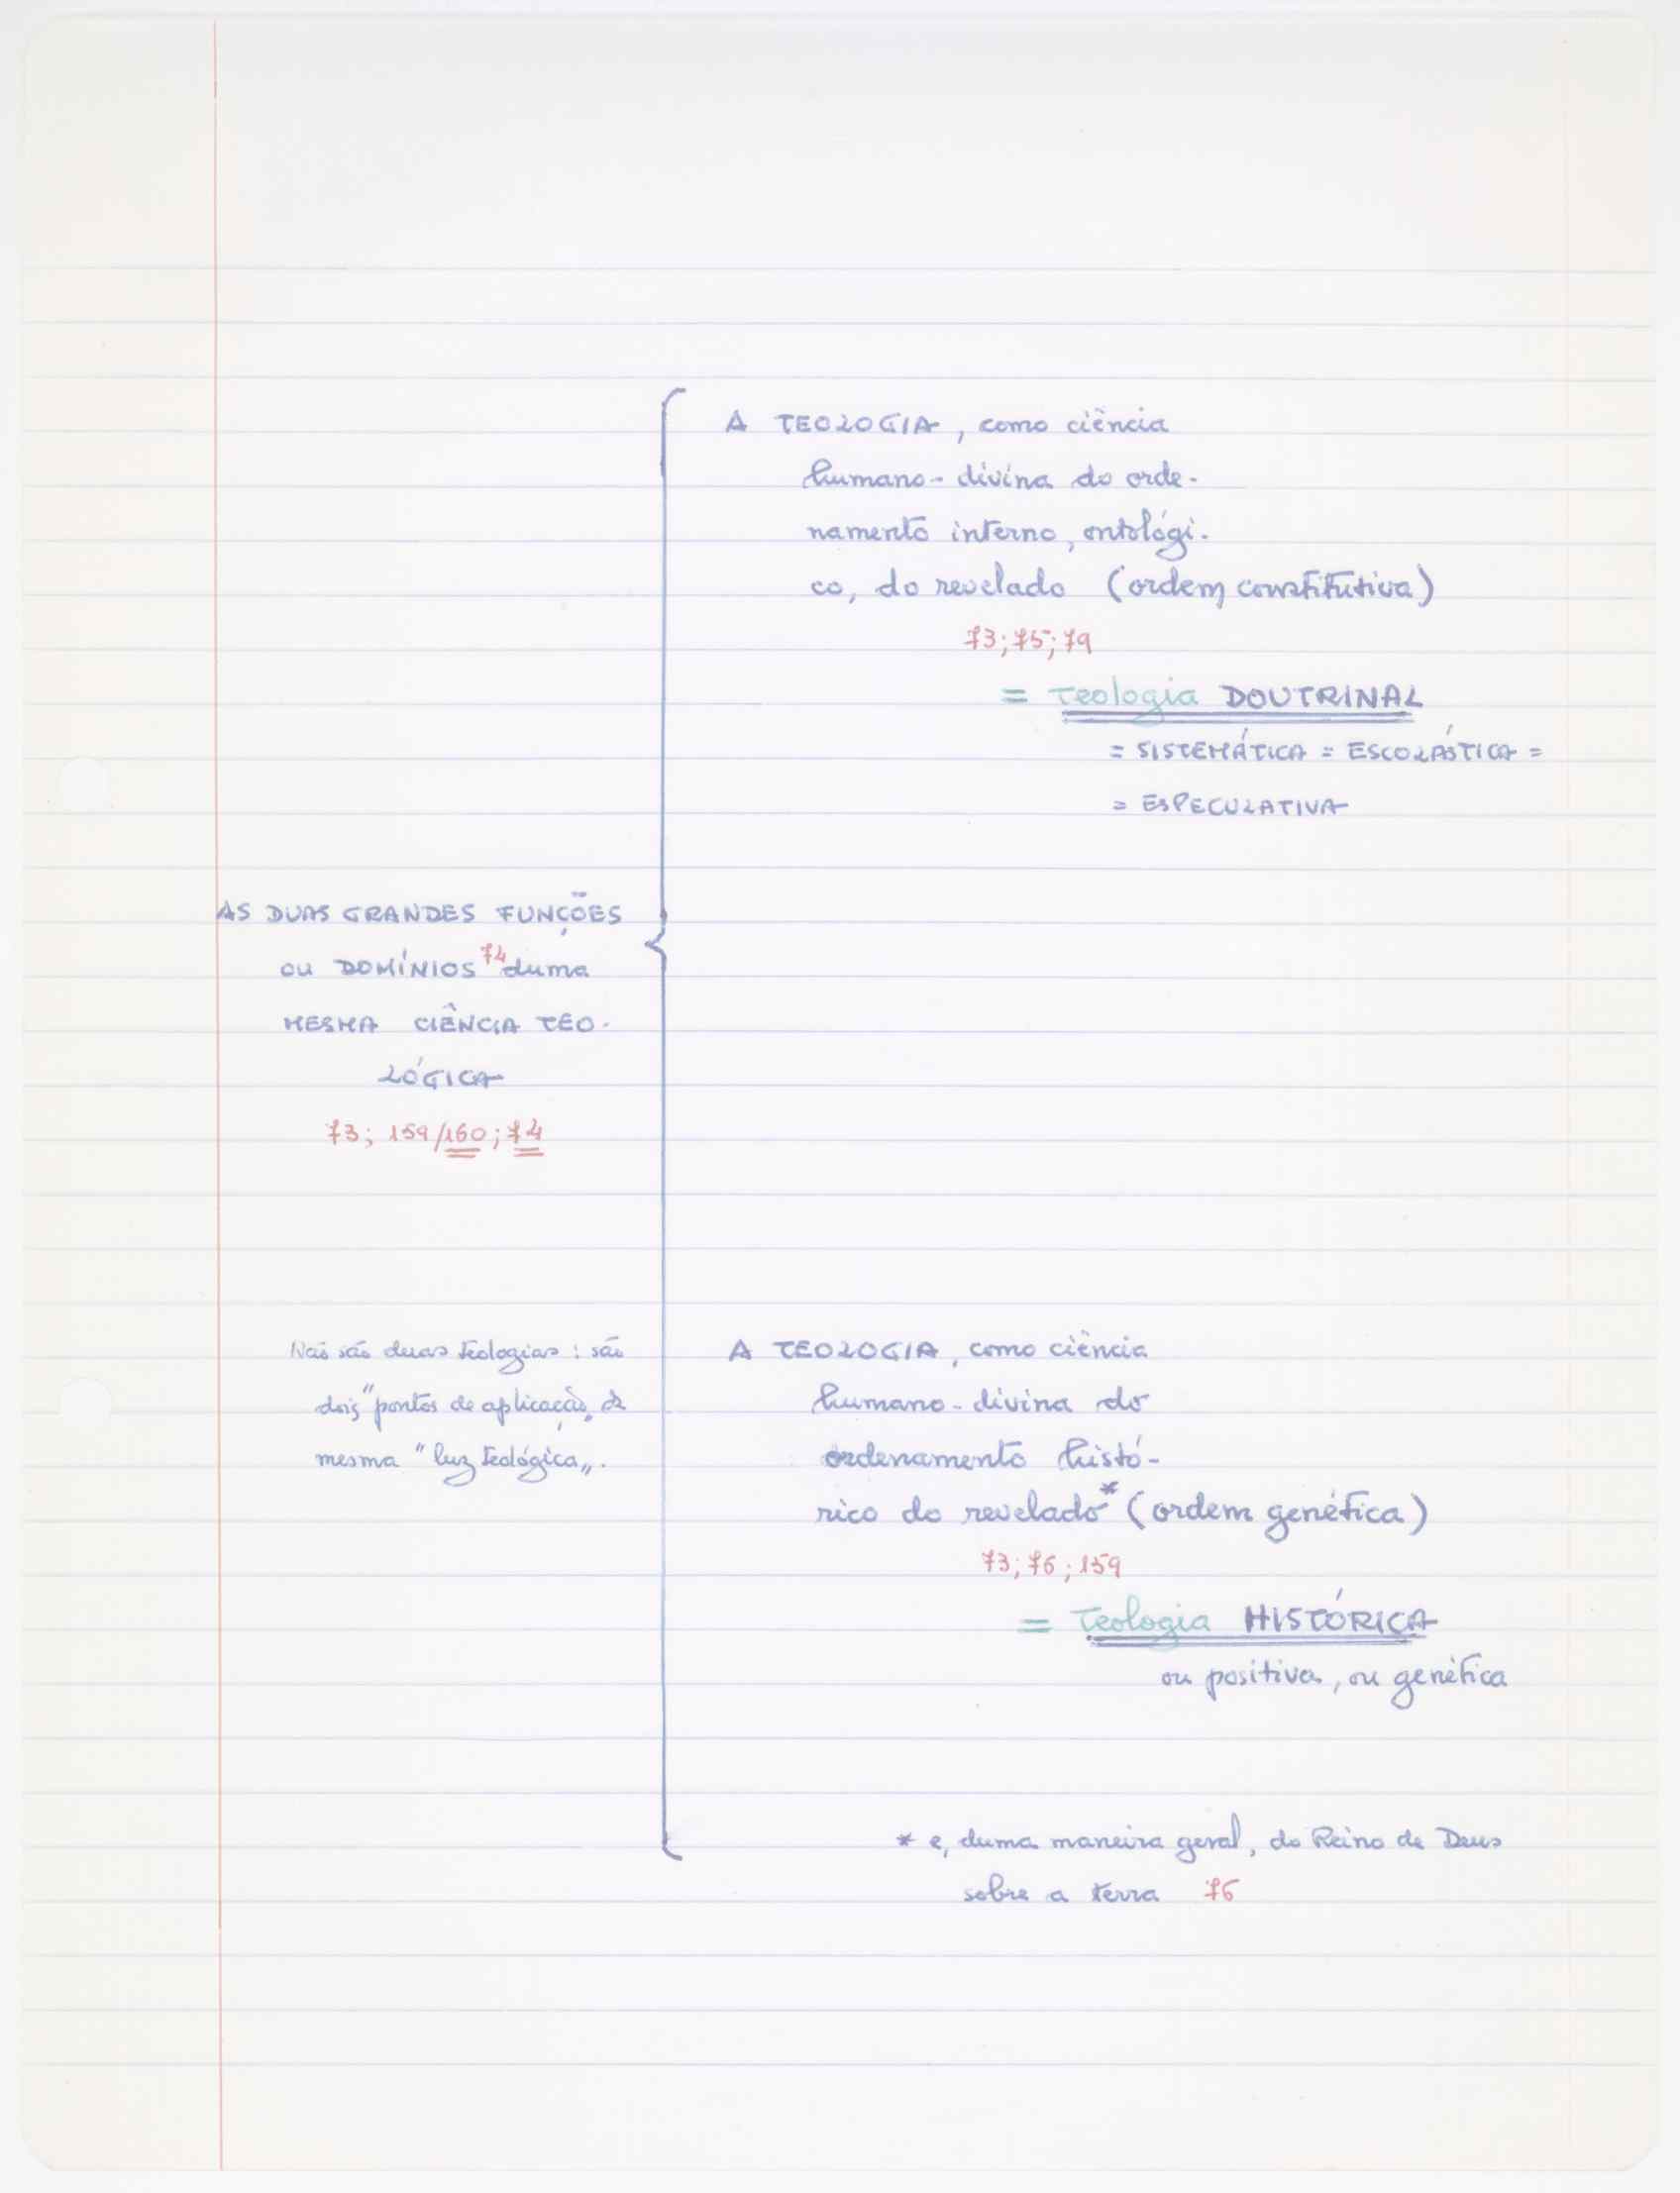 A TEOLOGIA, como ciência
humano-divina do orde-
namento interno, ontológi-
co, do revelado (ordem constitutiva)
73; 75; 79
= Teologia DOUTRINAL
= SISTEMÁTICA = ESCOLÁSTICA =
= ESPECULATIVA
AS DUAS GRANDES FUNÇÕES
OU DOMÍNIOS 74 duma
MESMA CIÊNCIA TEO-
LÓGICA
73; 159/160; 74
Não são duas teologias: são
dois "pontos de aplicação" da
mesma "luz teológica".
A TEOLOGIA, como ciência
humano-divina do
ordenamento histó-
rico do revelado* (ordem genética)
73; 76; 159
= Teologia HISTÓRICA
ou positiva, ou genética
* e, duma maneira geral, do Reino de Deus
sobre a terra 76